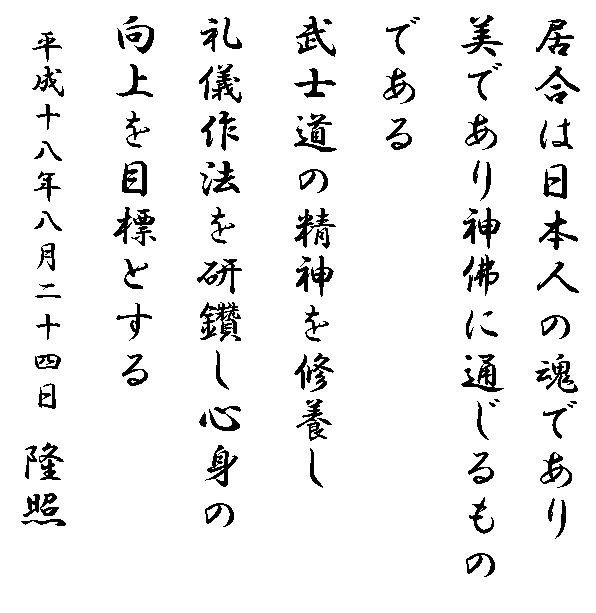 居合は日本人の魂であり
美であり神佛に通じるもの
である
武士道の精神を修養し
礼儀作法を研鑽し心身の
向上を目標とする
平成十八年八月二十四日 隆照